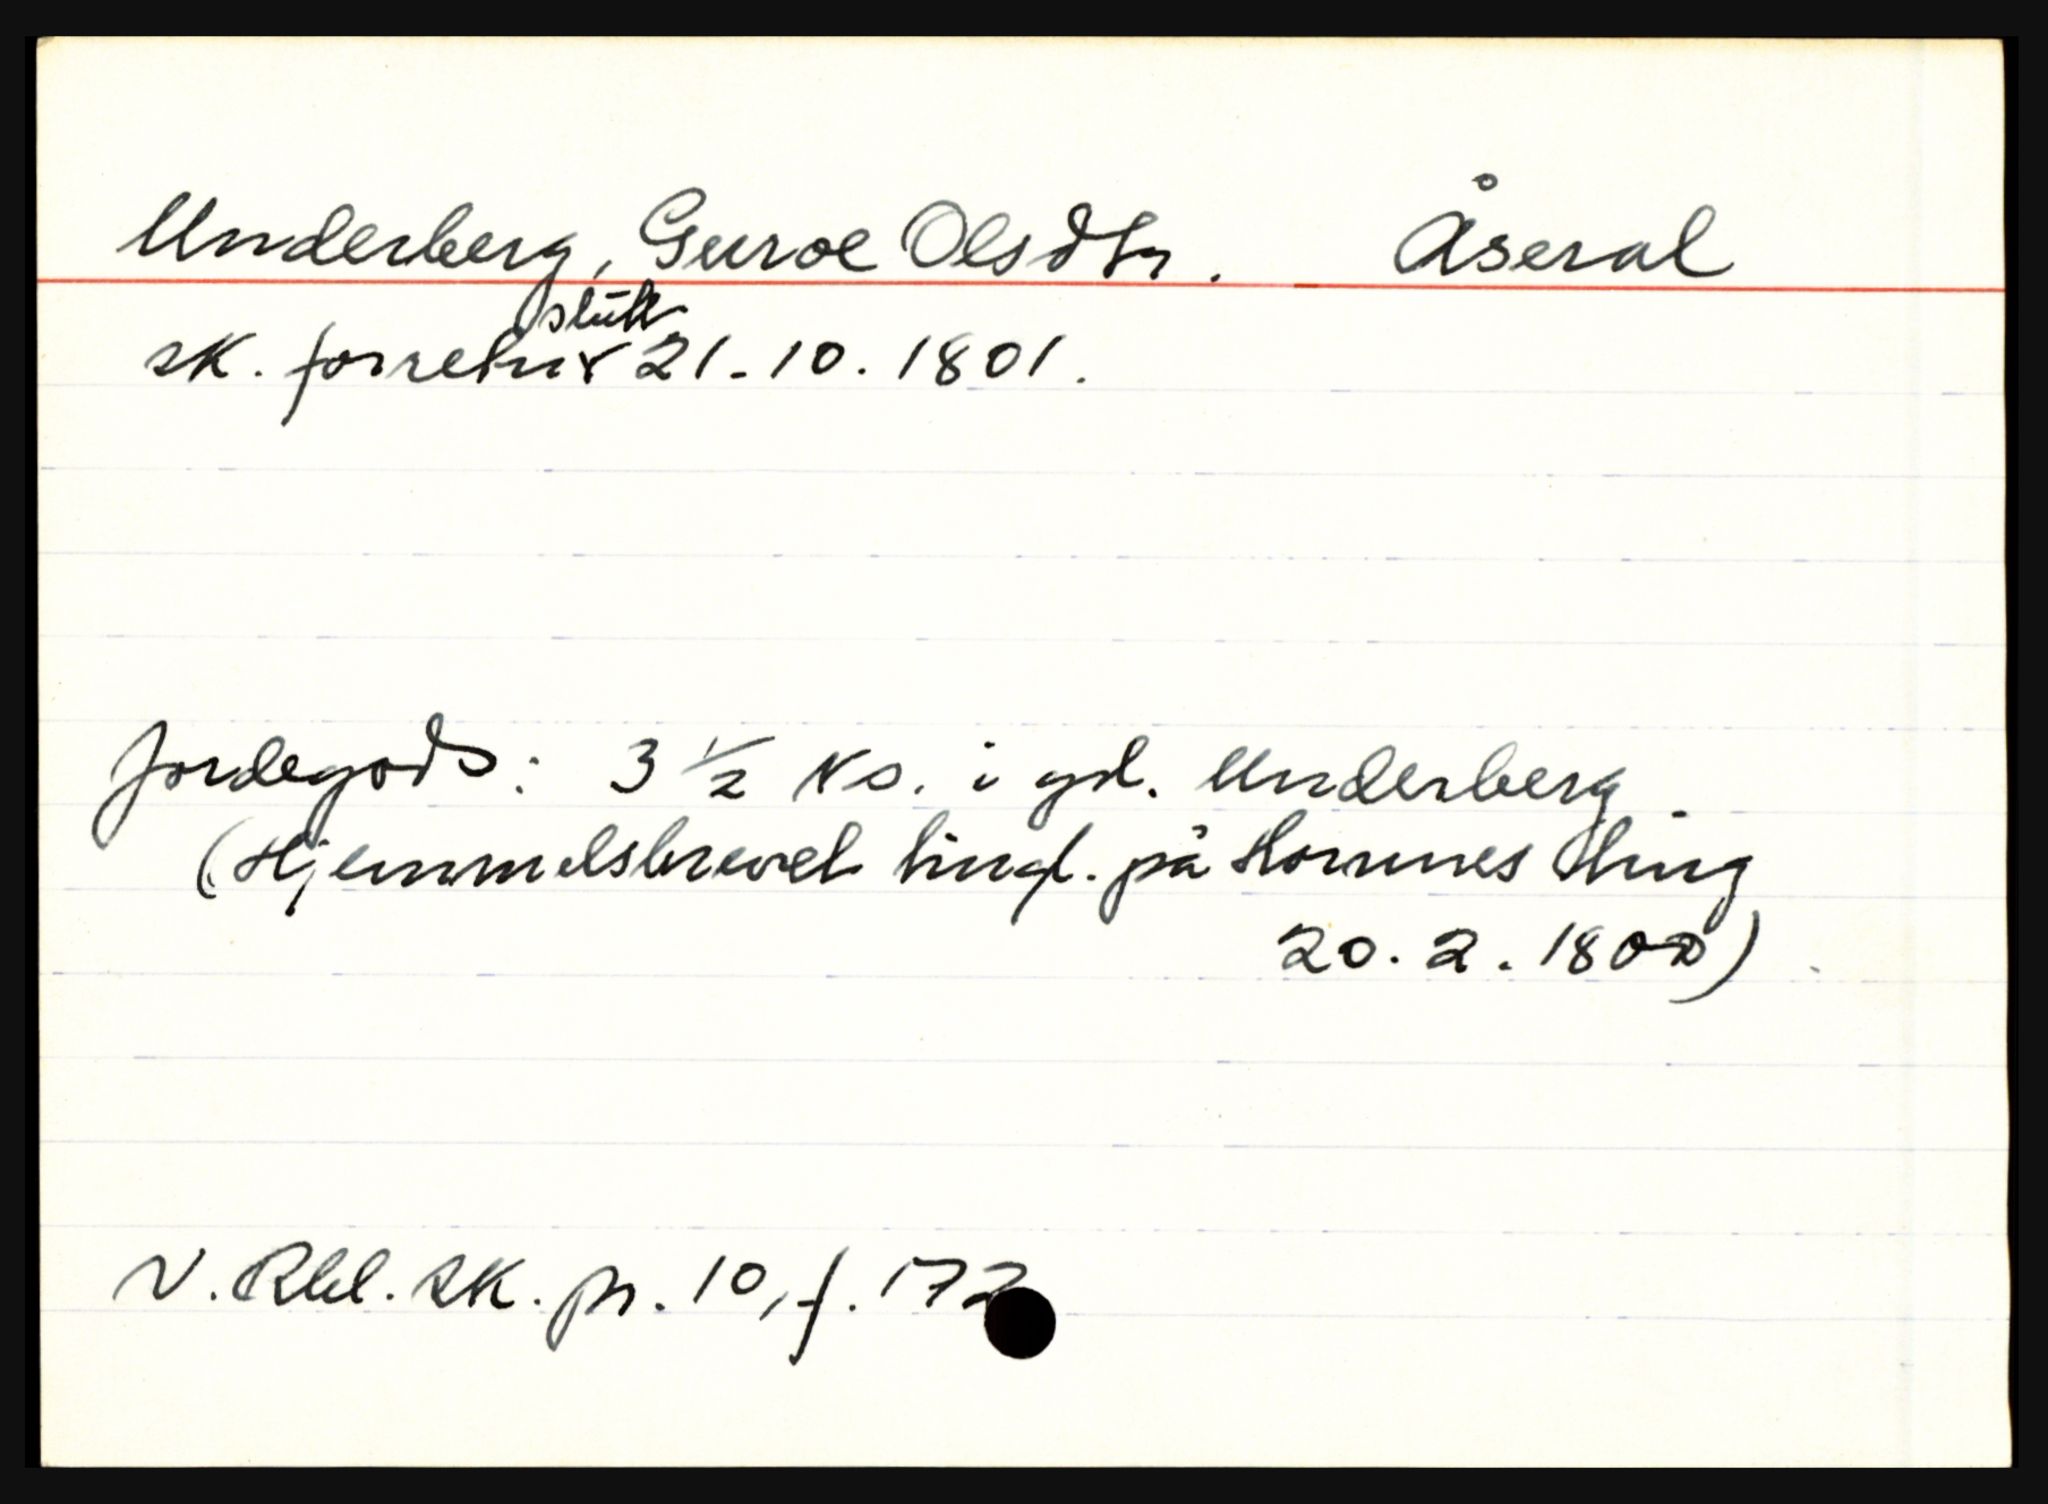 Underberg, Guroe Olsdtr. Åseral
slutt
sk. forretn. 21-10.1801.
Jordegods: 3 1/2 ks. i gd. Underberg
(Hjemmelsbrevet tingl. på Hornnes thing
20.2.1800)
V. Rbl. sk. pr. 10, f. 172